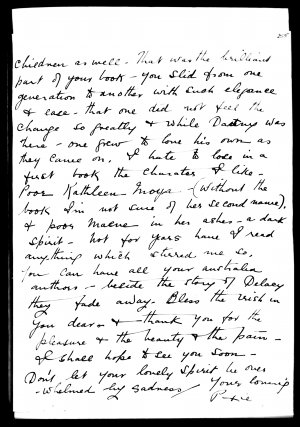 children as well. That was the brilliant
part of your book - you slid from one
generation to another with such elegance
& ease - that one did not feel the
change so greatly & while Dad was
there - one grew to love his own as
they came on. I hate to lose in a
first book the charater I like -
Poor Kathleen Moya - (Without the
book I'm not sure of her second name),
& poor Maeve in her ashes - a dark
spirit - not for years have I read
anything which stirred me so.
You can have all your australia
authors - beside the story of Delacy
they fade away - Bless the irish in
you dear - & - thank you for the
pleasure & the beauty & the pain -
& I shall hope to see you soon -
Don't let your lovely spirit be over
-whelmed by sadness
Yours loving